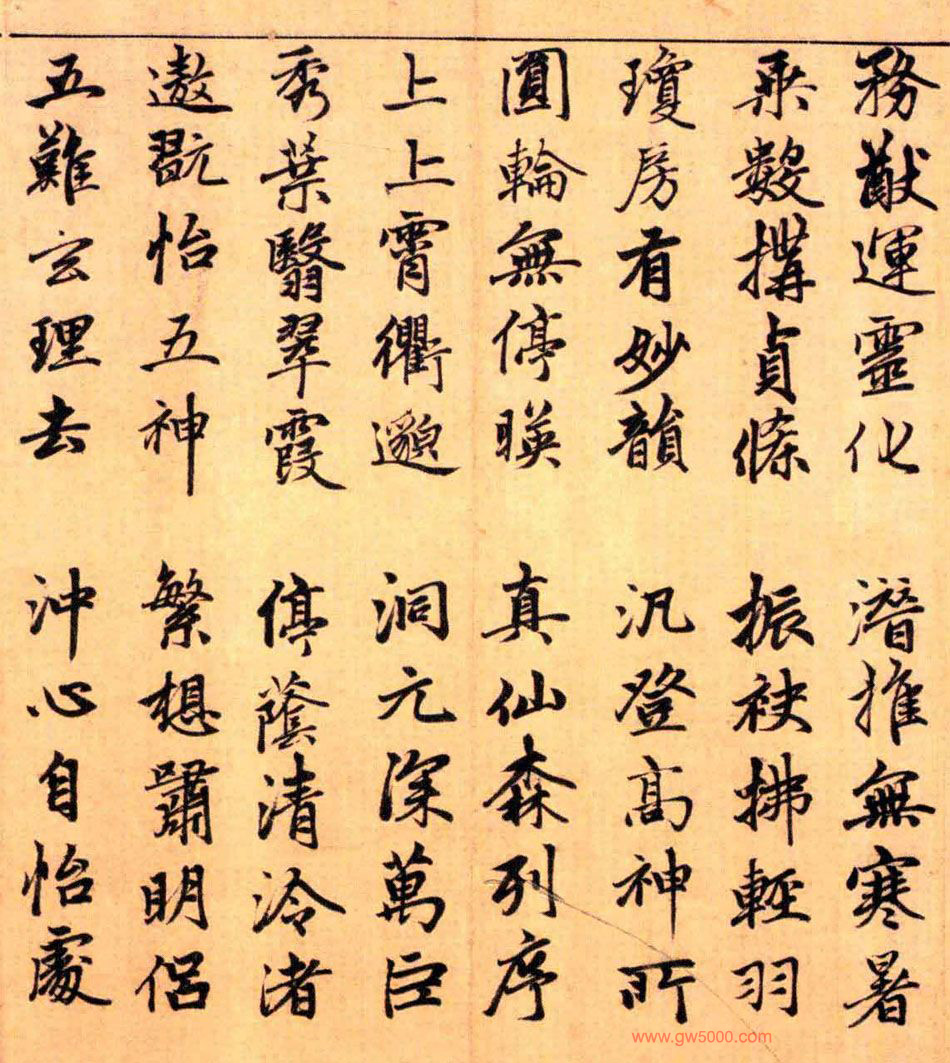 務猷運靈化 潛推無寒暑
乘數構貞條 振袂拂輕羽
瓊房有妙韻 汎登高神所
圓輪無停暎 真仙森列序
上上霄衢邈 洞元深萬巨
秀葉翳翠霞 停蔭清泠渚
遨翫怡五神 繁想嘯明侶
五難玄理去 沖心自怡處
www.gw5000.com